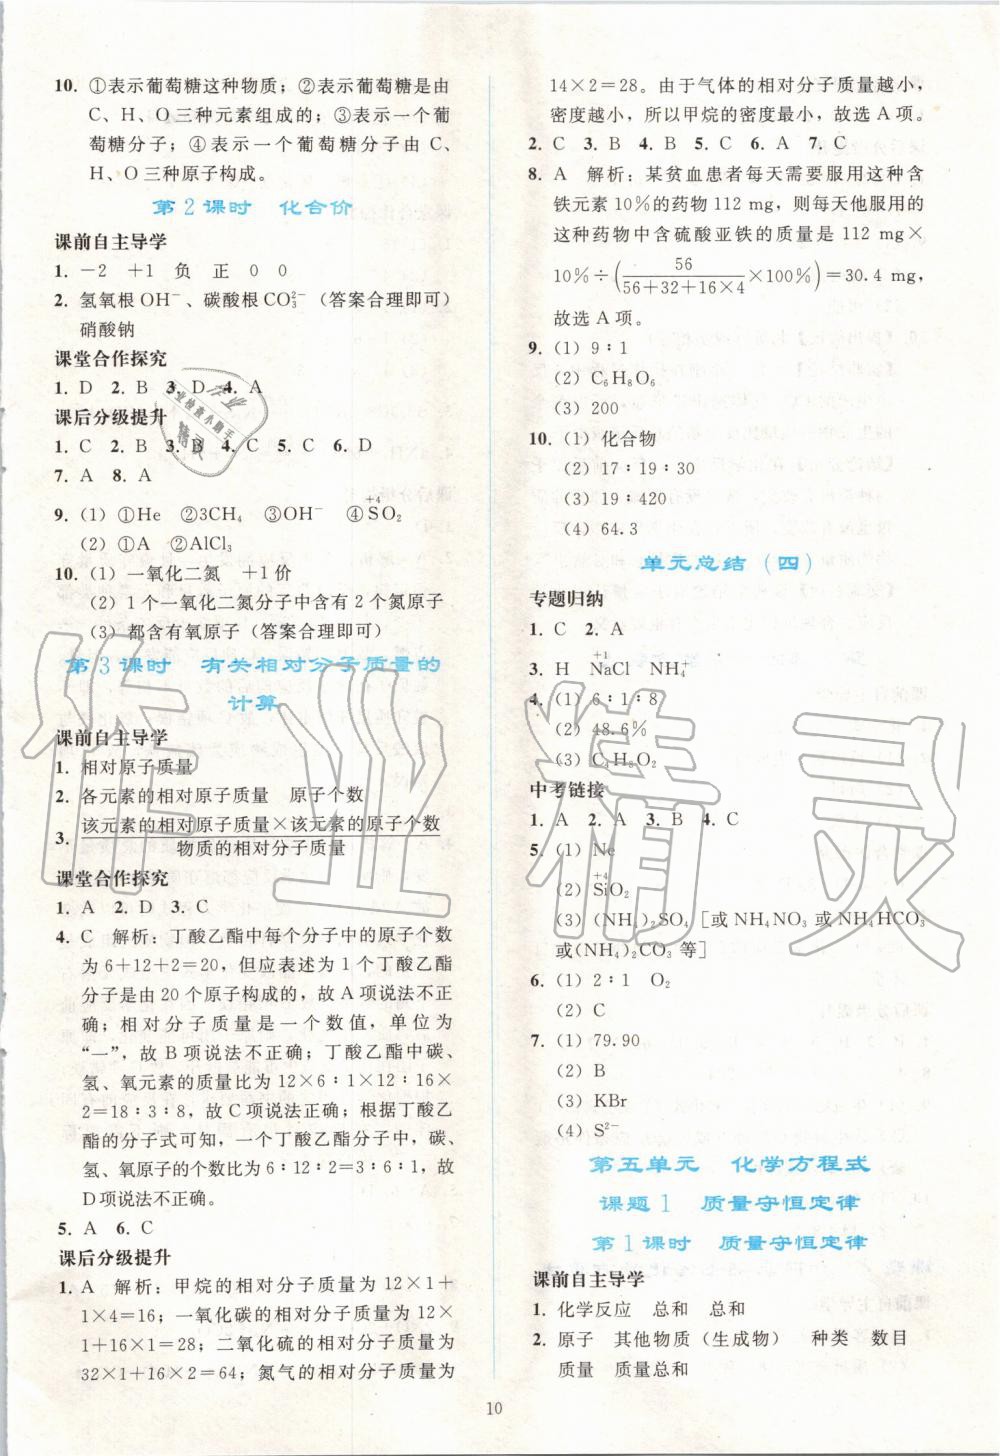 10. ①表示葡萄糖这种物质；②表示葡萄糖是由
C、H、O三种元素组成的；③表示一个葡
萄糖分子；④表示一个葡萄糖分子由C、
H、O三种原子构成。
第2课时 化合价
课前自主导学
1. －2 ＋1 负 正 0 0
2. 氢氧根OH⁻、碳酸根CO₃²⁻（答案合理即可）
硝酸钠
课堂合作探究
1. D 2. B 3. D 4. A
课后分级提升
1. C 2. B 3. B 4. C 5. C 6. D
7. A 8. A
9. (1) ①He ②3CH₄ ③OH⁻ ④$\overset{+4}{S}$O₂
(2) ①A ②AlCl₃
10. (1) 一氧化二氮 ＋1价
(2) 1个一氧化二氮分子中含有2个氮原子
(3) 都含有氧原子（答案合理即可）
第3课时 有关相对分子质量的
计算
课前自主导学
1. 相对原子质量
2. 各元素的相对原子质量 原子个数
3. $\frac{该元素的相对原子质量×该元素的原子个数}{物质的相对分子质量}$
课堂合作探究
1. A 2. D 3. C
4. C 解析：丁酸乙酯中每个分子中的原子个数
为6＋12＋2＝20，但应表述为1个丁酸乙酯
分子是由20个原子构成的，故A项说法不正
确；相对分子质量是一个数值，单位为
“一”，故B项说法不正确；丁酸乙酯中碳、
氢、氧元素的质量比为12×6∶1×12∶16×
2＝18∶3∶8，故C项说法正确；根据丁酸乙
酯的分子式可知，一个丁酸乙酯分子中，碳、
氢、氧原子的个数比为6∶12∶2＝3∶6∶1，故
D项说法不正确。
5. A 6. C
课后分级提升
1. A 解析：甲烷的相对分子质量为12×1＋
1×4＝16；一氧化碳的相对分子质量为12×
1＋16×1＝28；二氧化硫的相对分子质量为
32×1＋16×2＝64；氮气的相对分子质量为
14×2＝28。由于气体的相对分子质量越小，
密度越小，所以甲烷的密度最小，故选A项。
2. C 3. B 4. B 5. C 6. A 7. C
8. A 解析：某贫血患者每天需要服用这种含
铁元素10％的药物112 mg，则每天他服用的
这种药物中含硫酸亚铁的质量是112 mg×
10％÷$\left(\frac{56}{56+32+16×4}×100％\right)$＝30.4 mg，
故选A项。
9. (1) 9∶1
(2) C₆H₈O₆
(3) 200
10. (1) 化合物
(2) 17∶19∶30
(3) 19∶420
(4) 64.3
单元总结（四）
专题归纳
1. C 2. A
3. H $\overset{+1}{Na}$Cl NH₄⁺
4. (1) 6∶1∶8
(2) 48.6％
(3) C₄H₈O₂
中考链接
1. A 2. A 3. B 4. C
5. (1) Ne
(2) $\overset{+4}{Si}$O₂
(3) (NH₄)₂SO₄［或NH₄NO₃或NH₄HCO₃
或(NH₄)₂CO₃等］
6. (1) 2∶1 O₂
(2) C
7. (1) 79.90
(2) B
(3) KBr
(4) S²⁻
第五单元 化学方程式
课题1 质量守恒定律
第1课时 质量守恒定律
课前自主导学
1. 化学反应 总和 总和
2. 原子 其他物质（生成物） 种类 数目
质量 质量总和
10
作业精灵